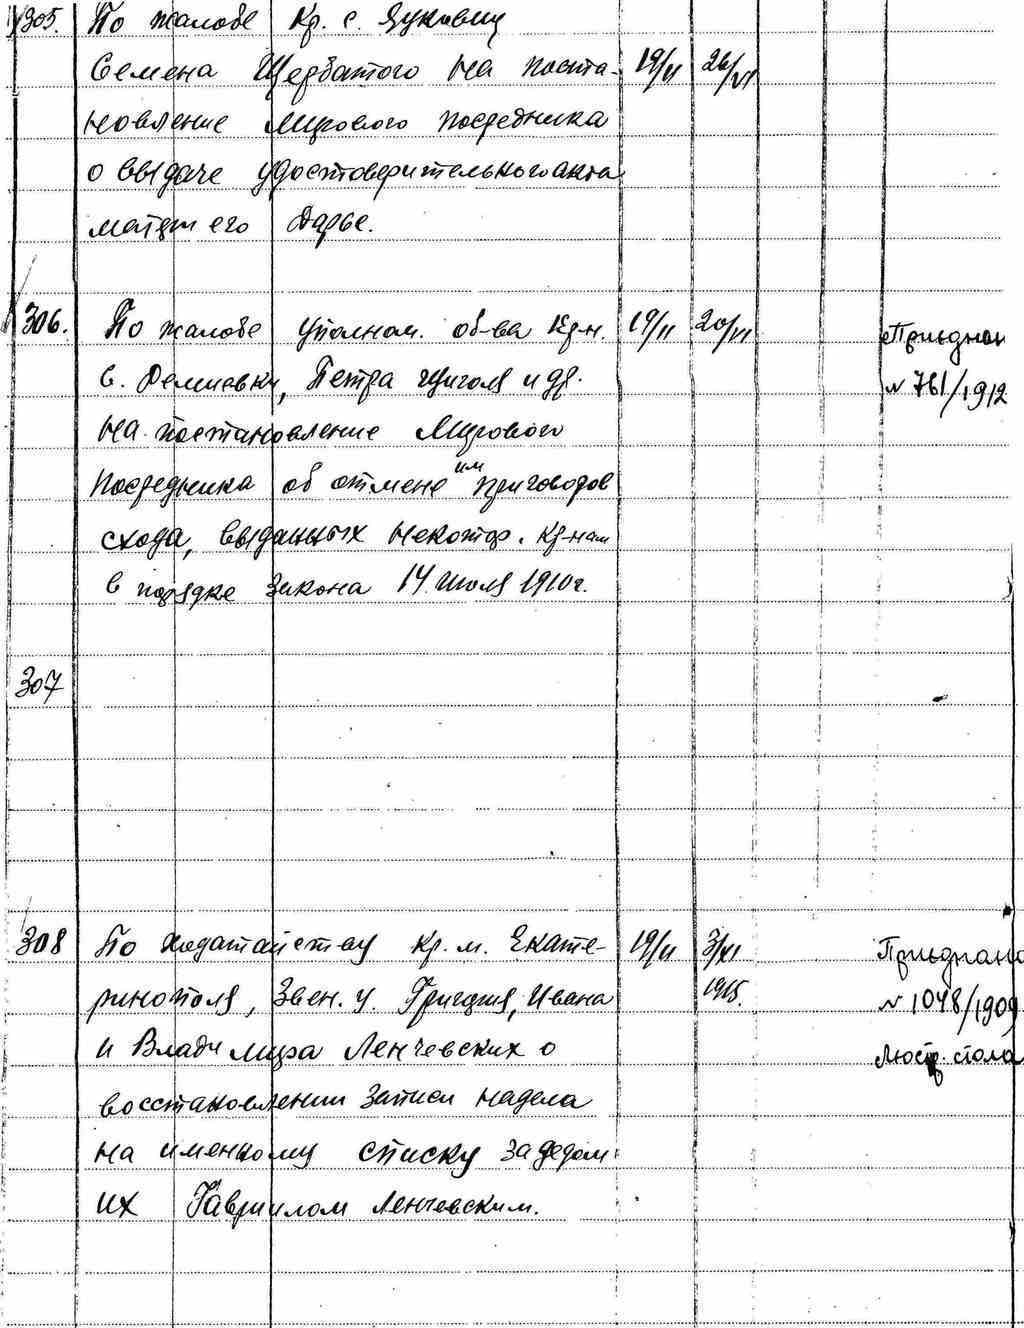 305. По жалобе Кр. с. Яцковиц
Семена Щербатого на поста- 19/II 26/VI
новление Мирового посредника
о выдаче удостоверительного акта
матери его Дарье.
306. По жалобе уполном. об-ва Кр-н. 19/II 20/VI Приєднан
в. Демиевки, Петра и др. № 761/1912
на постановление Мирового
Посредника об отмене им приговоров
схода, выданных некотор. Кр-нам
в порядке Закона 14 июля 1910 г.
307
308 По ходатайству Кр. м. Екате- 19/II 3/XI Приєднано
ринополя, Звен. у. Григория, Ивана 1915. № 1048/1909
и Владимира Ленчевских о Люстр. стола
восстановлении записи надела
на именному списку за дедом
их Гавриилом Ленчевским.